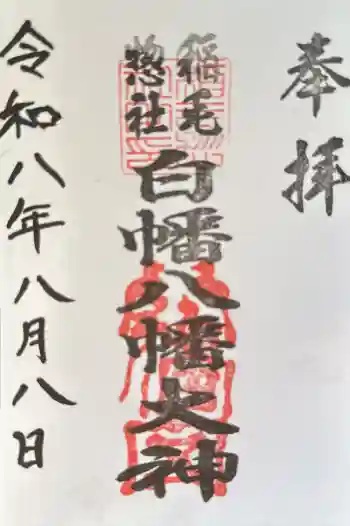 奉拝
稲毛
惣社
白幡八幡大神
令和八年八月八日